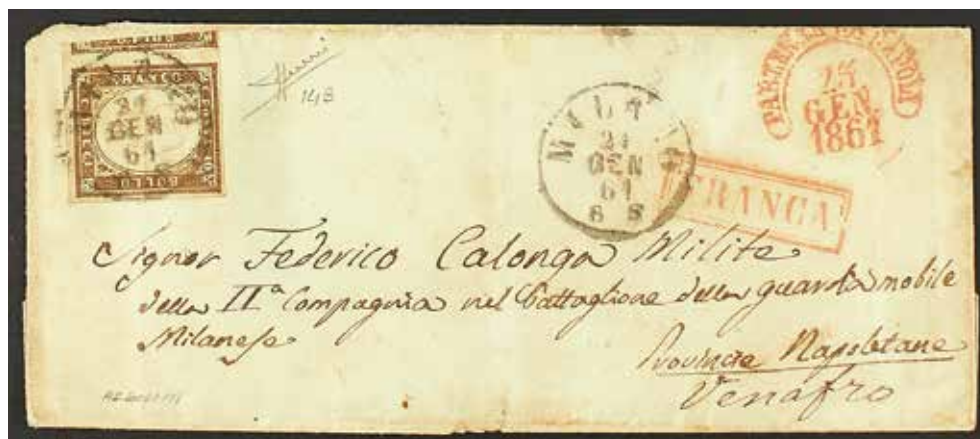 FRANCO
BOLLO
21
GEN
61
148
MILANO
21
GEN
61
6 S
PARTENZA DA NAPOLI
GEN.
1861
FRANCA
Signor Federico Calonga Milite
della IIª Compagnia nel Battaglione della guardia mobile
Milanese
Provincie Napoletane
Venafro